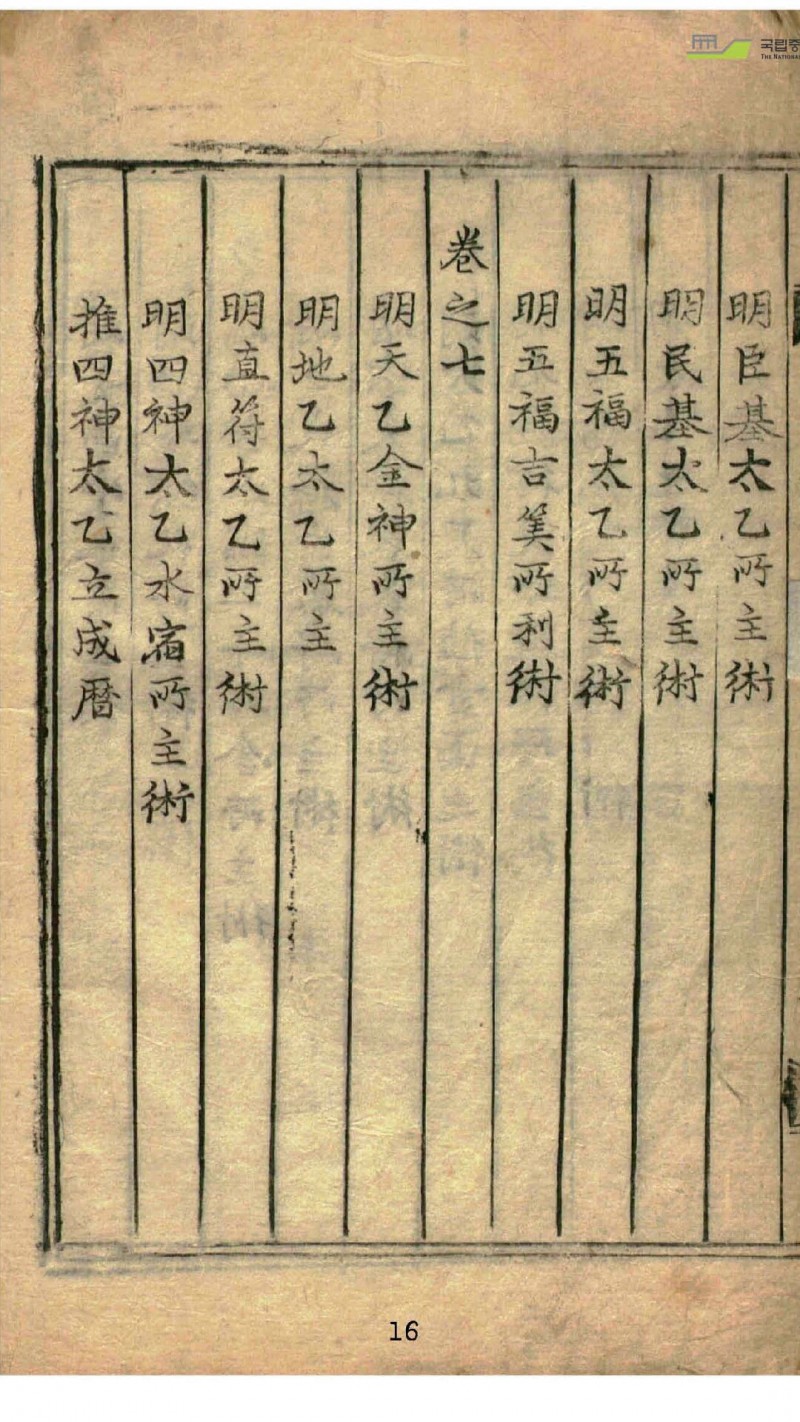 明臣基太乙所主術
明民基太乙所主術
明五福太乙所主術
明五福吉筭所利術
卷之七
明天乙金神所主術
明地乙太乙所主
明直符太乙所主術
明四神太乙水宿所主術
推四神太乙立成曆
국립중
THE NATIONAL
16